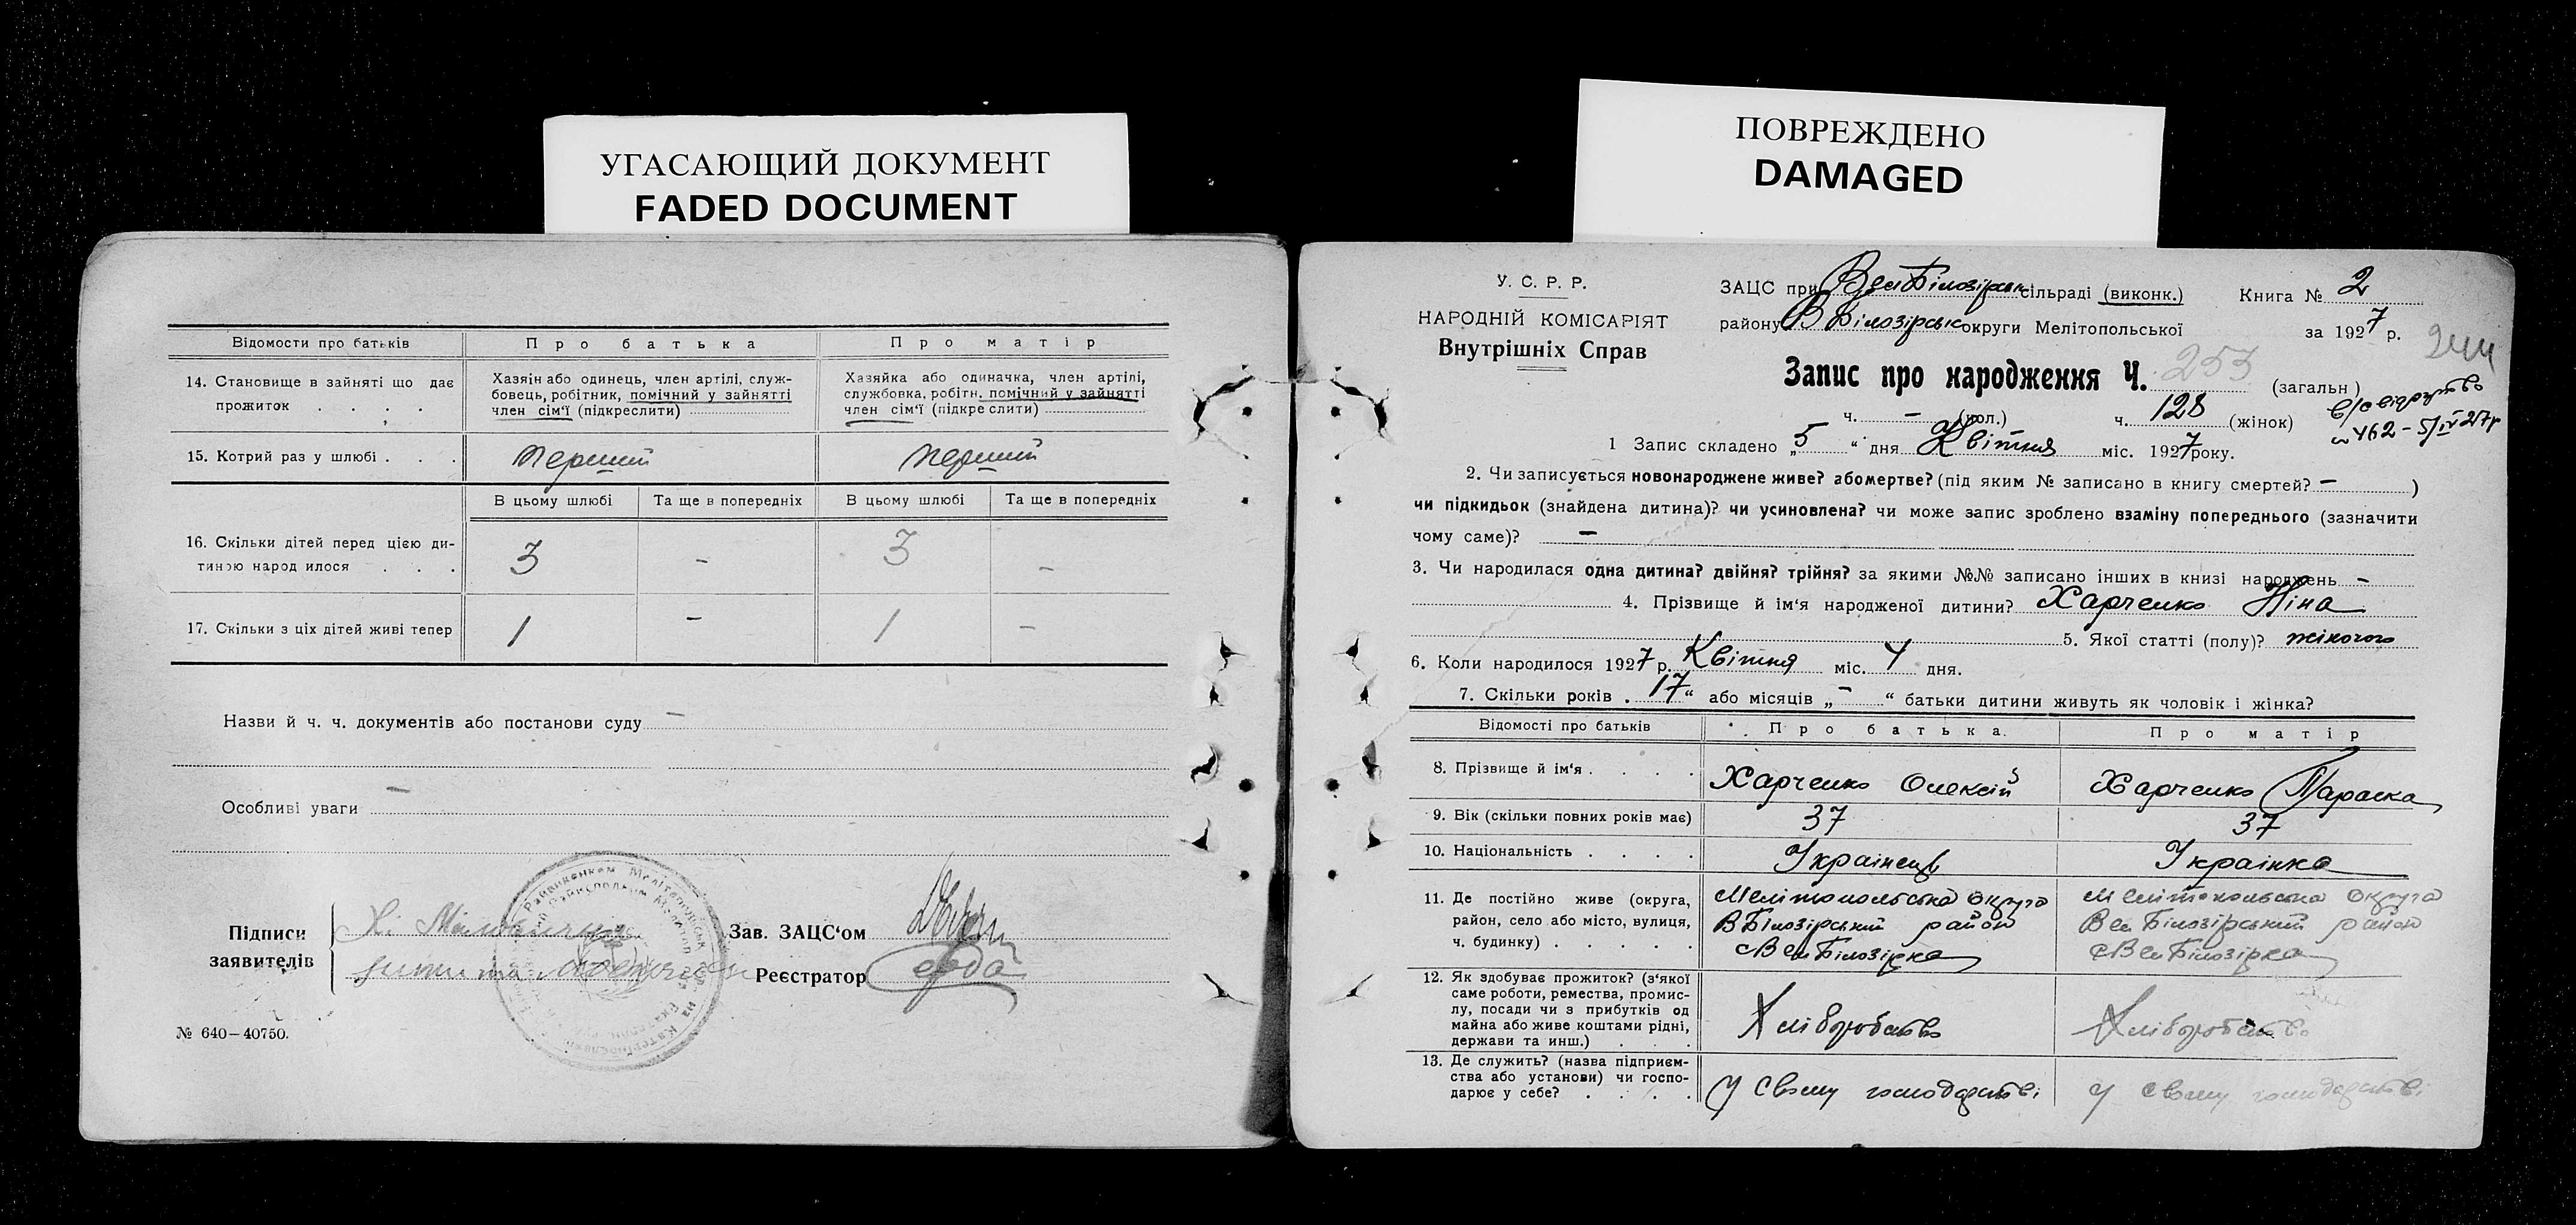 УГАСАЮЩИЙ ДОКУМЕНТ
FADED DOCUMENT
Відомости про батьків Про батька Про матір
14. Становище в зайняті що дає
прожиток . . . .
Хазяїн або одинець, член артілі, служ-
бовець, робітник, помічний у зайнятті
член сім‘ї (підкреслити)
Хазяйка або одиначка, член артілі,
службовка, робітн. помічний у зайнятті
член сім‘ї (підкреслити)
15. Котрий раз у шлюбі . . . перший перший
В цьому шлюбі Та ще в попередніх В цьому шлюбі Та ще в попередніх
16. Скільки дітей перед цією ди-
тиною народилося . . . 3 - 3 -
17. Скільки з ціх дітей живі тепер 1 - 1 -
Назви й ч. ч. документів або постанови суду -
Особливі уваги -
Підписи
заявителів
Зав. ЗАЦС‘ом
Реєстратор
№ 640—40750.
ПОВРЕЖДЕНО
DAMAGED
У. С. Р. Р.
НАРОДНІЙ КОМІСАРІЯТ
Внутрішніх Справ
ЗАЦС при Вел Білозірськ сільраді (виконк.) Книга № 2
району В Білозірськ округи Мелітопольської за 1927 р.
Запис про народження Ч. 253 (загальн.)
ч. - (чол.) ч. 128 (жінок)
1 Запис складено „5“ дня Квітня міс. 1927 року.
2. Чи записується новонароджене живе? або мертве? (під яким № записано в книгу смертей? - )
чи підкидьок (знайдена дитина)? чи усиновлена? чи може запис зроблено взаміну попереднього (зазначити
чому саме)? -
3. Чи народилася одна дитина? двійня? трійня? за якими №№ записано інших в книзі народжень -
4. Прізвище й ім‘я народженої дитини? Харченко Ніна
5. Якої статті (полу)? жіночого
6. Коли народилося 1927 р. Квітня міс. 4 дня.
7. Скільки років . 17“ або місяців „-“ батьки дитини живуть як чоловік і жінка?
Відомості про батьків Про батька. Про матір
8. Прізвище й ім‘я . . . . Харченко Олексій Харченко Параска
9. Вік (скільки повних років має) 37 37
10. Національність . . . . Українець Українка
11. Де постійно живе (округа,
район, село або місто, вулиця,
ч. будинку) . . . . .
Мелітопольська округа
В Білозірський район
с Вел Білозірка
Мелітопольська округа
Вел Білозірський район
с Вел Білозірка
12. Як здобуває прожиток? (з‘якої
саме роботи, ремества, промис-
лу, посади чи з прибутків од
майна або живе коштами рідні,
держави та инш.) . . .
Хліборобство Хліборобство
13. Де служить? (назва підприєм-
ства або установи) чи госпо-
дарює у себе? . . . .
У своему господарстві У своему господарстві